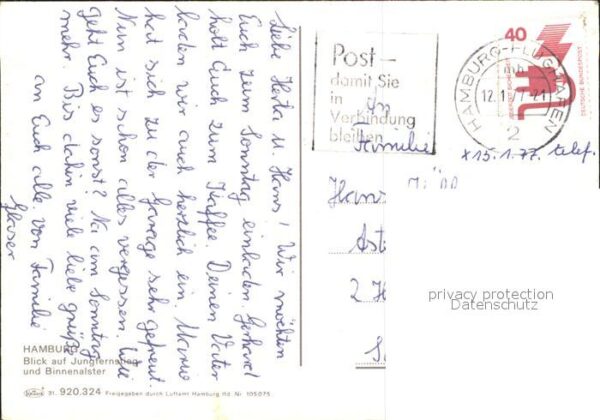 Liebe Herta u. Hans! Wir möchten
Euch zum Sonntag einladen. Gerhard
holt Euch zum Kaffee. Deinen Vater
laden wir auch herzlich ein. Mario
hat sich zu der Garage sehr gefreut.
Nun ist schon alles vergessen. Wie
geht Euch es sonst? Na am Sonntag
mehr. Bis dahin viele liebe Grüße
an Euch alle. von Familie
Glaser
HAMBURG
Blick auf Jungfernstieg
und Binnenalster
31. 920.324 Freigegeben durch Luftamt Hamburg Nr. 105075
Post –
damit Sie
in
Verbindung
bleiben
HAMBURG-FLUGHAFEN
12.1. 77-21
mh
2
40
JEDERZEIT SICHERHEIT
DEUTSCHE BUNDESPOST
An
Familie
x 15.1.77. telef.
Hans
2 H
privacy protection
Datenschutz